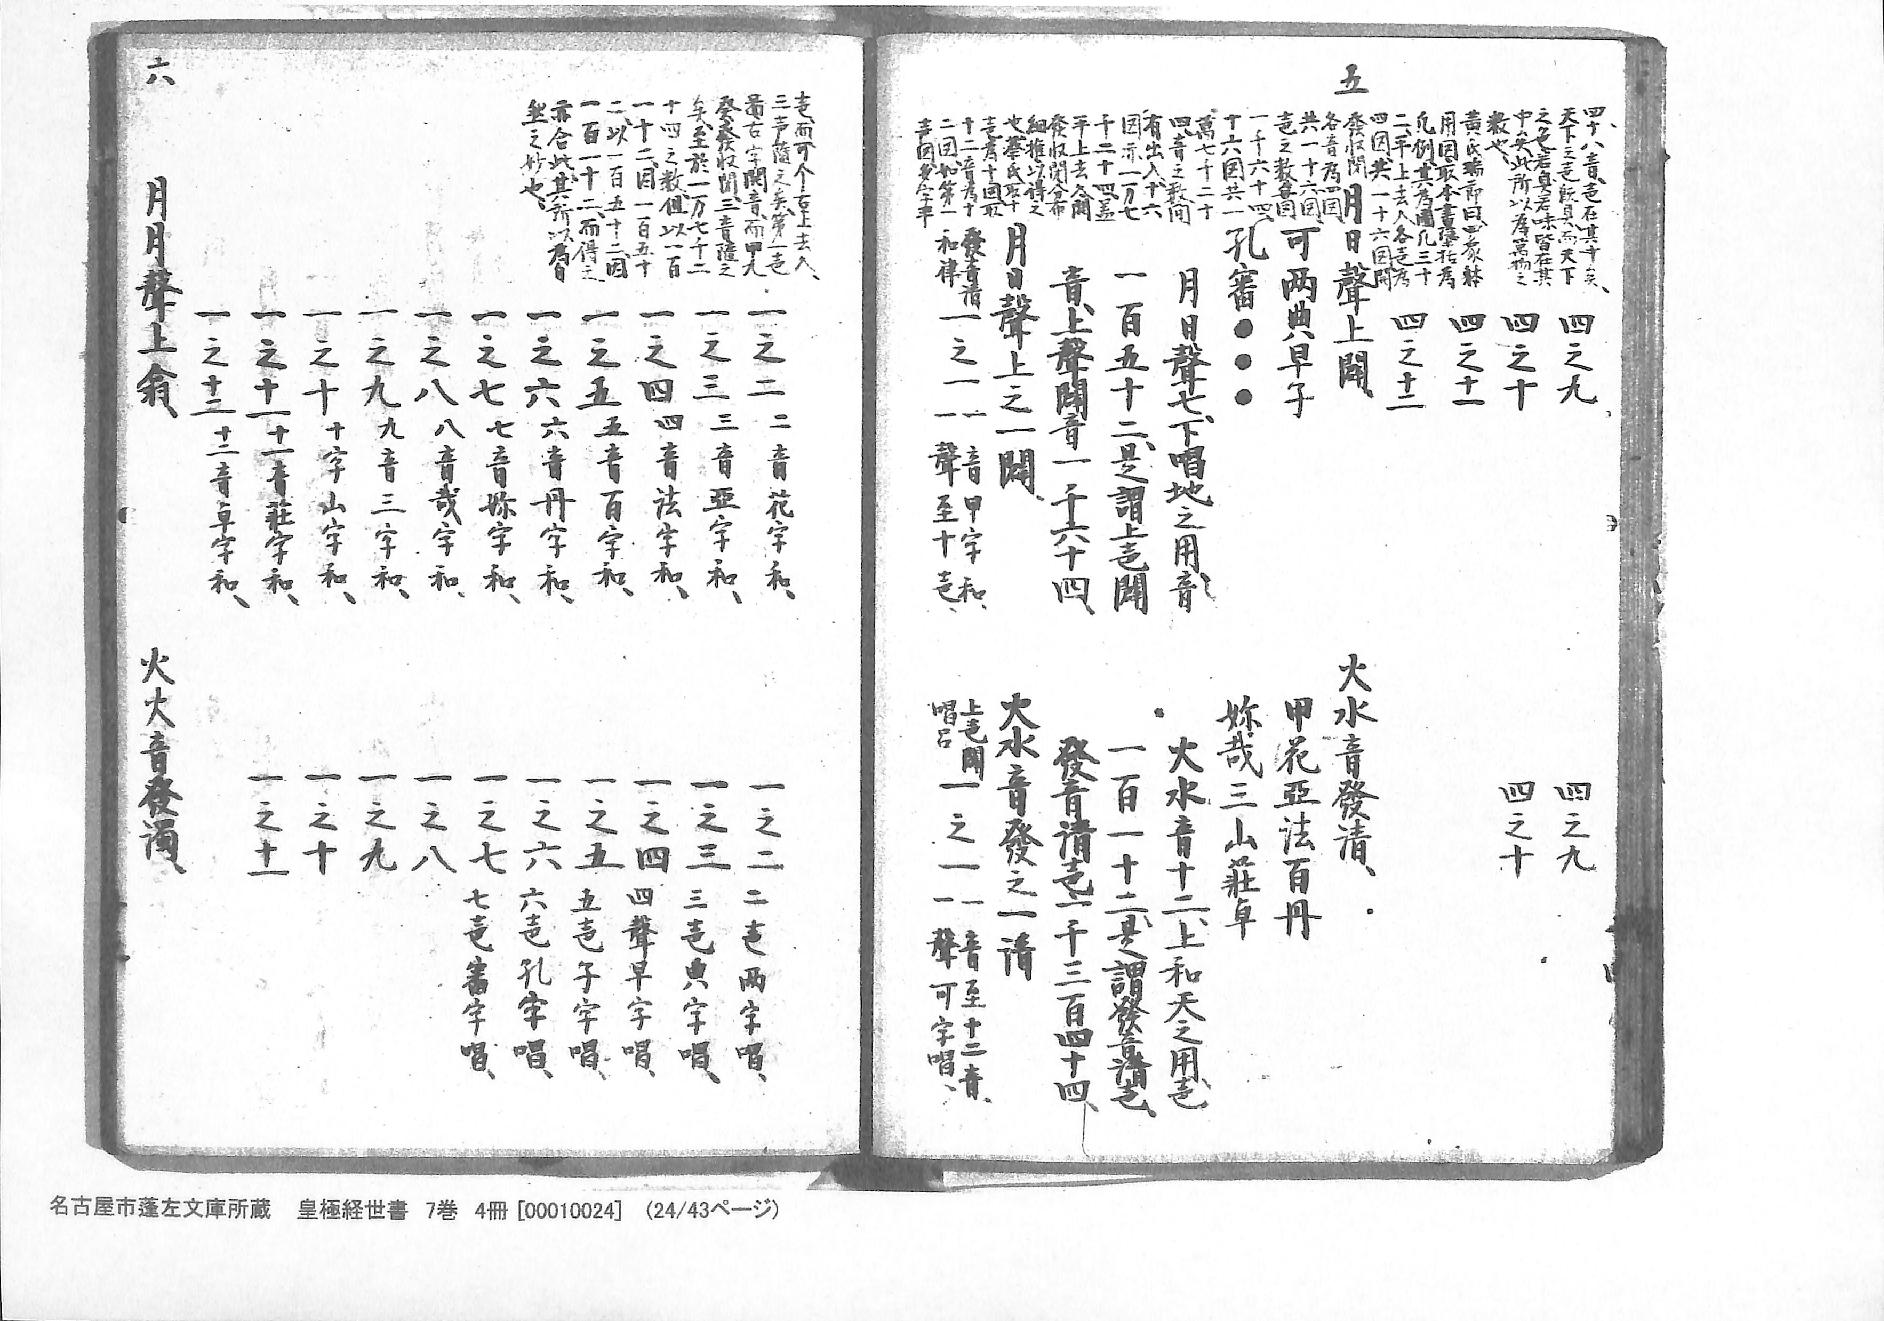 四十八音声在其中矣、
天下之声既具而天下
之色若臭若味皆在其
中矣此所以為萬物之
數也、
黄氏瑞節曰四象体
用図取本書檃括為
凡例其為圖凡三十
二、平上去入各声為
四図共一十六図開
發収閉
各音為四図
共一十六図
声之数每図
一千六十四、
十六図共一
萬七千二十
四音之数同
有出入十六
図示一万七
千二十四盖
平上去入開
發収閉分布
細推以得之
也蔡氏取十
声為十図取
十二音為十
二図如第一
声図多字平
四之九
四之十
四之十一
四之十二
四之九
四之十
五
月日聲上闢、
可两典早子
孔審●●●
月日聲七、下唱地之用音
一百五十二、是謂上声闢
音、上聲闢音一千六十四、
月日聲上之一闢、
發音清和律
一之一
一音甲字和、
一聲至十声、
火水音發清、
甲花亞法百丹
妳哉三山莊卓
火水音十二、上和天之用声、
一百一十二、是謂發音清声、
發音清声一千三百四十四、
火水音發之一清
上声闢唱呂
一之一
一音至十二音、
一聲可字唱、
声而可个舌上去入、
三声隨之矣第一音
图古字開音而甲九
癸發収閉三音隨之
矣至於一万七千二
十四之数但以一百
一十二、因一百五十
二、以一百五十二、因
一百一十二、而得之
亦合此其所以為自
然之妙也、
一之二 二音花字和、
一之三 三音亞字和、
一之四 四音法字和、
一之五 五音百字和、
一之六 六音丹字和、
一之七 七音妳字和、
一之八 八音哉字和、
一之九 九音三字和、
一之十 十字山字和、
一之十一 十一音莊字和、
一之十二 十二音卓字和、
一之二 二声两字唱、
一之三 三声典字唱、
一之四 四聲早字唱、
一之五 五声子字唱、
一之六 六声孔字唱、
一之七 七声審字唱、
一之八
一之九
一之十
一之十一
六
月月聲上翕、
火火音發濁、
名古屋市蓬左文庫所蔵 皇極経世書 7巻 4冊 [00010024] (24/43ページ)